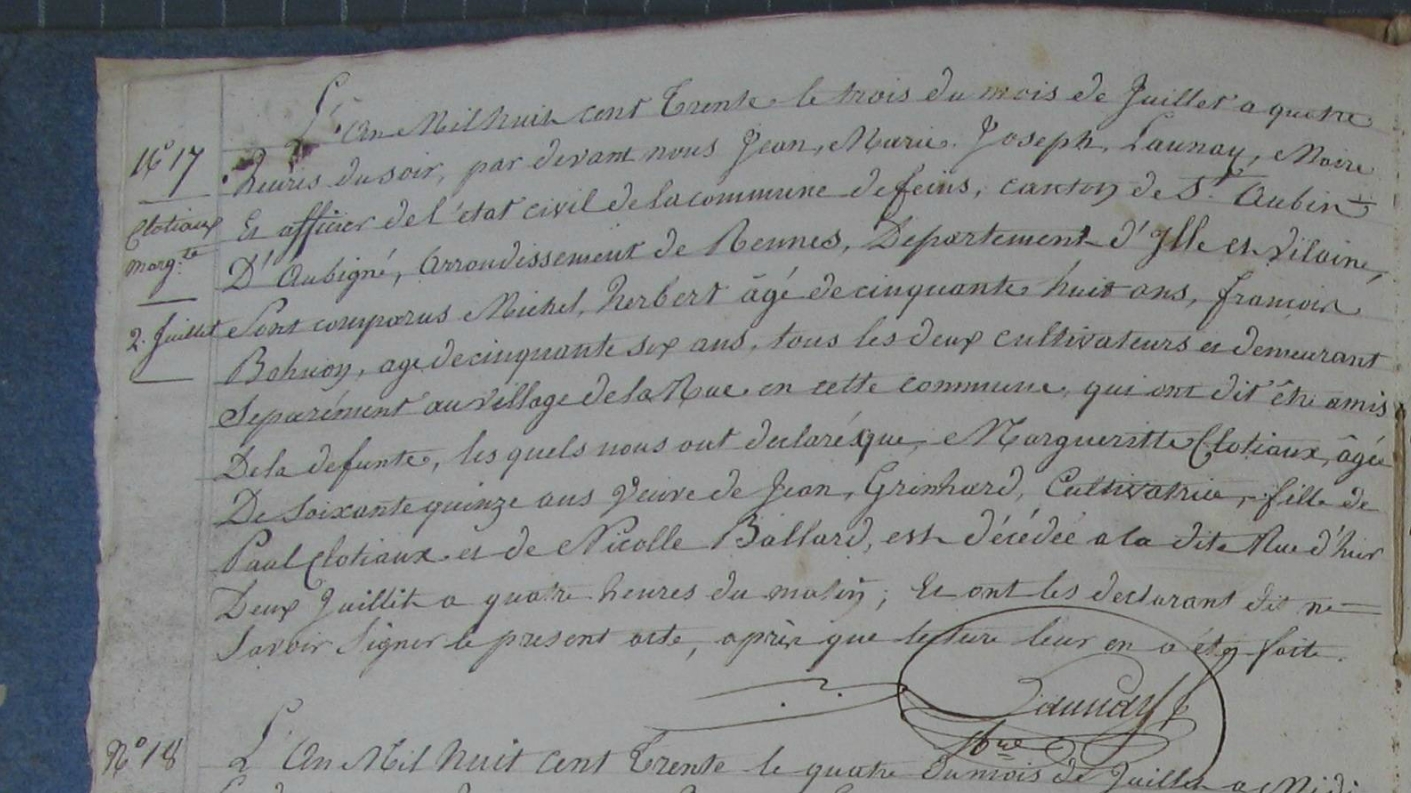 L'An Mil huit cent Trente le trois du mois de Juillet a quatre
N° 17
heures du soir, par devant nous Jean, Marie, Joseph, Launay, Maire
Clotiaux
Et officier de l'état civil de la commune de feins, canton de St. Aubin
Marg.te
D'Aubigné, Arrondissement de Rennes, Departement d'Ille et Vilaine,
2. Juillet
Sont comparus Michel, Herbert âgé de cinquante huit ans, françois
Bohuon, age de cinquante six ans, tous les deux cultivateurs et demeurant
Separément au village de la Rue en cette commune, qui ont dit être amis
De la defunte, les quels nous ont declarés que, Margueritte Clotiaux, âgée
De soixante quinze ans Veuve de Jean, Grinhard, Cultivatrice, fille de
Paul Clotiaux et de Nicolle Ballard, est décédée a la dite Rue d'hier
Deux Juillet a quatre heures du matin; Et ont les declarant dit ne
Savoir Signer le present acte, après que lecture leur en a été faite.
Launay
N° 18
L'An Mil huit cent Trente le quatre du mois de Juillet a Midi